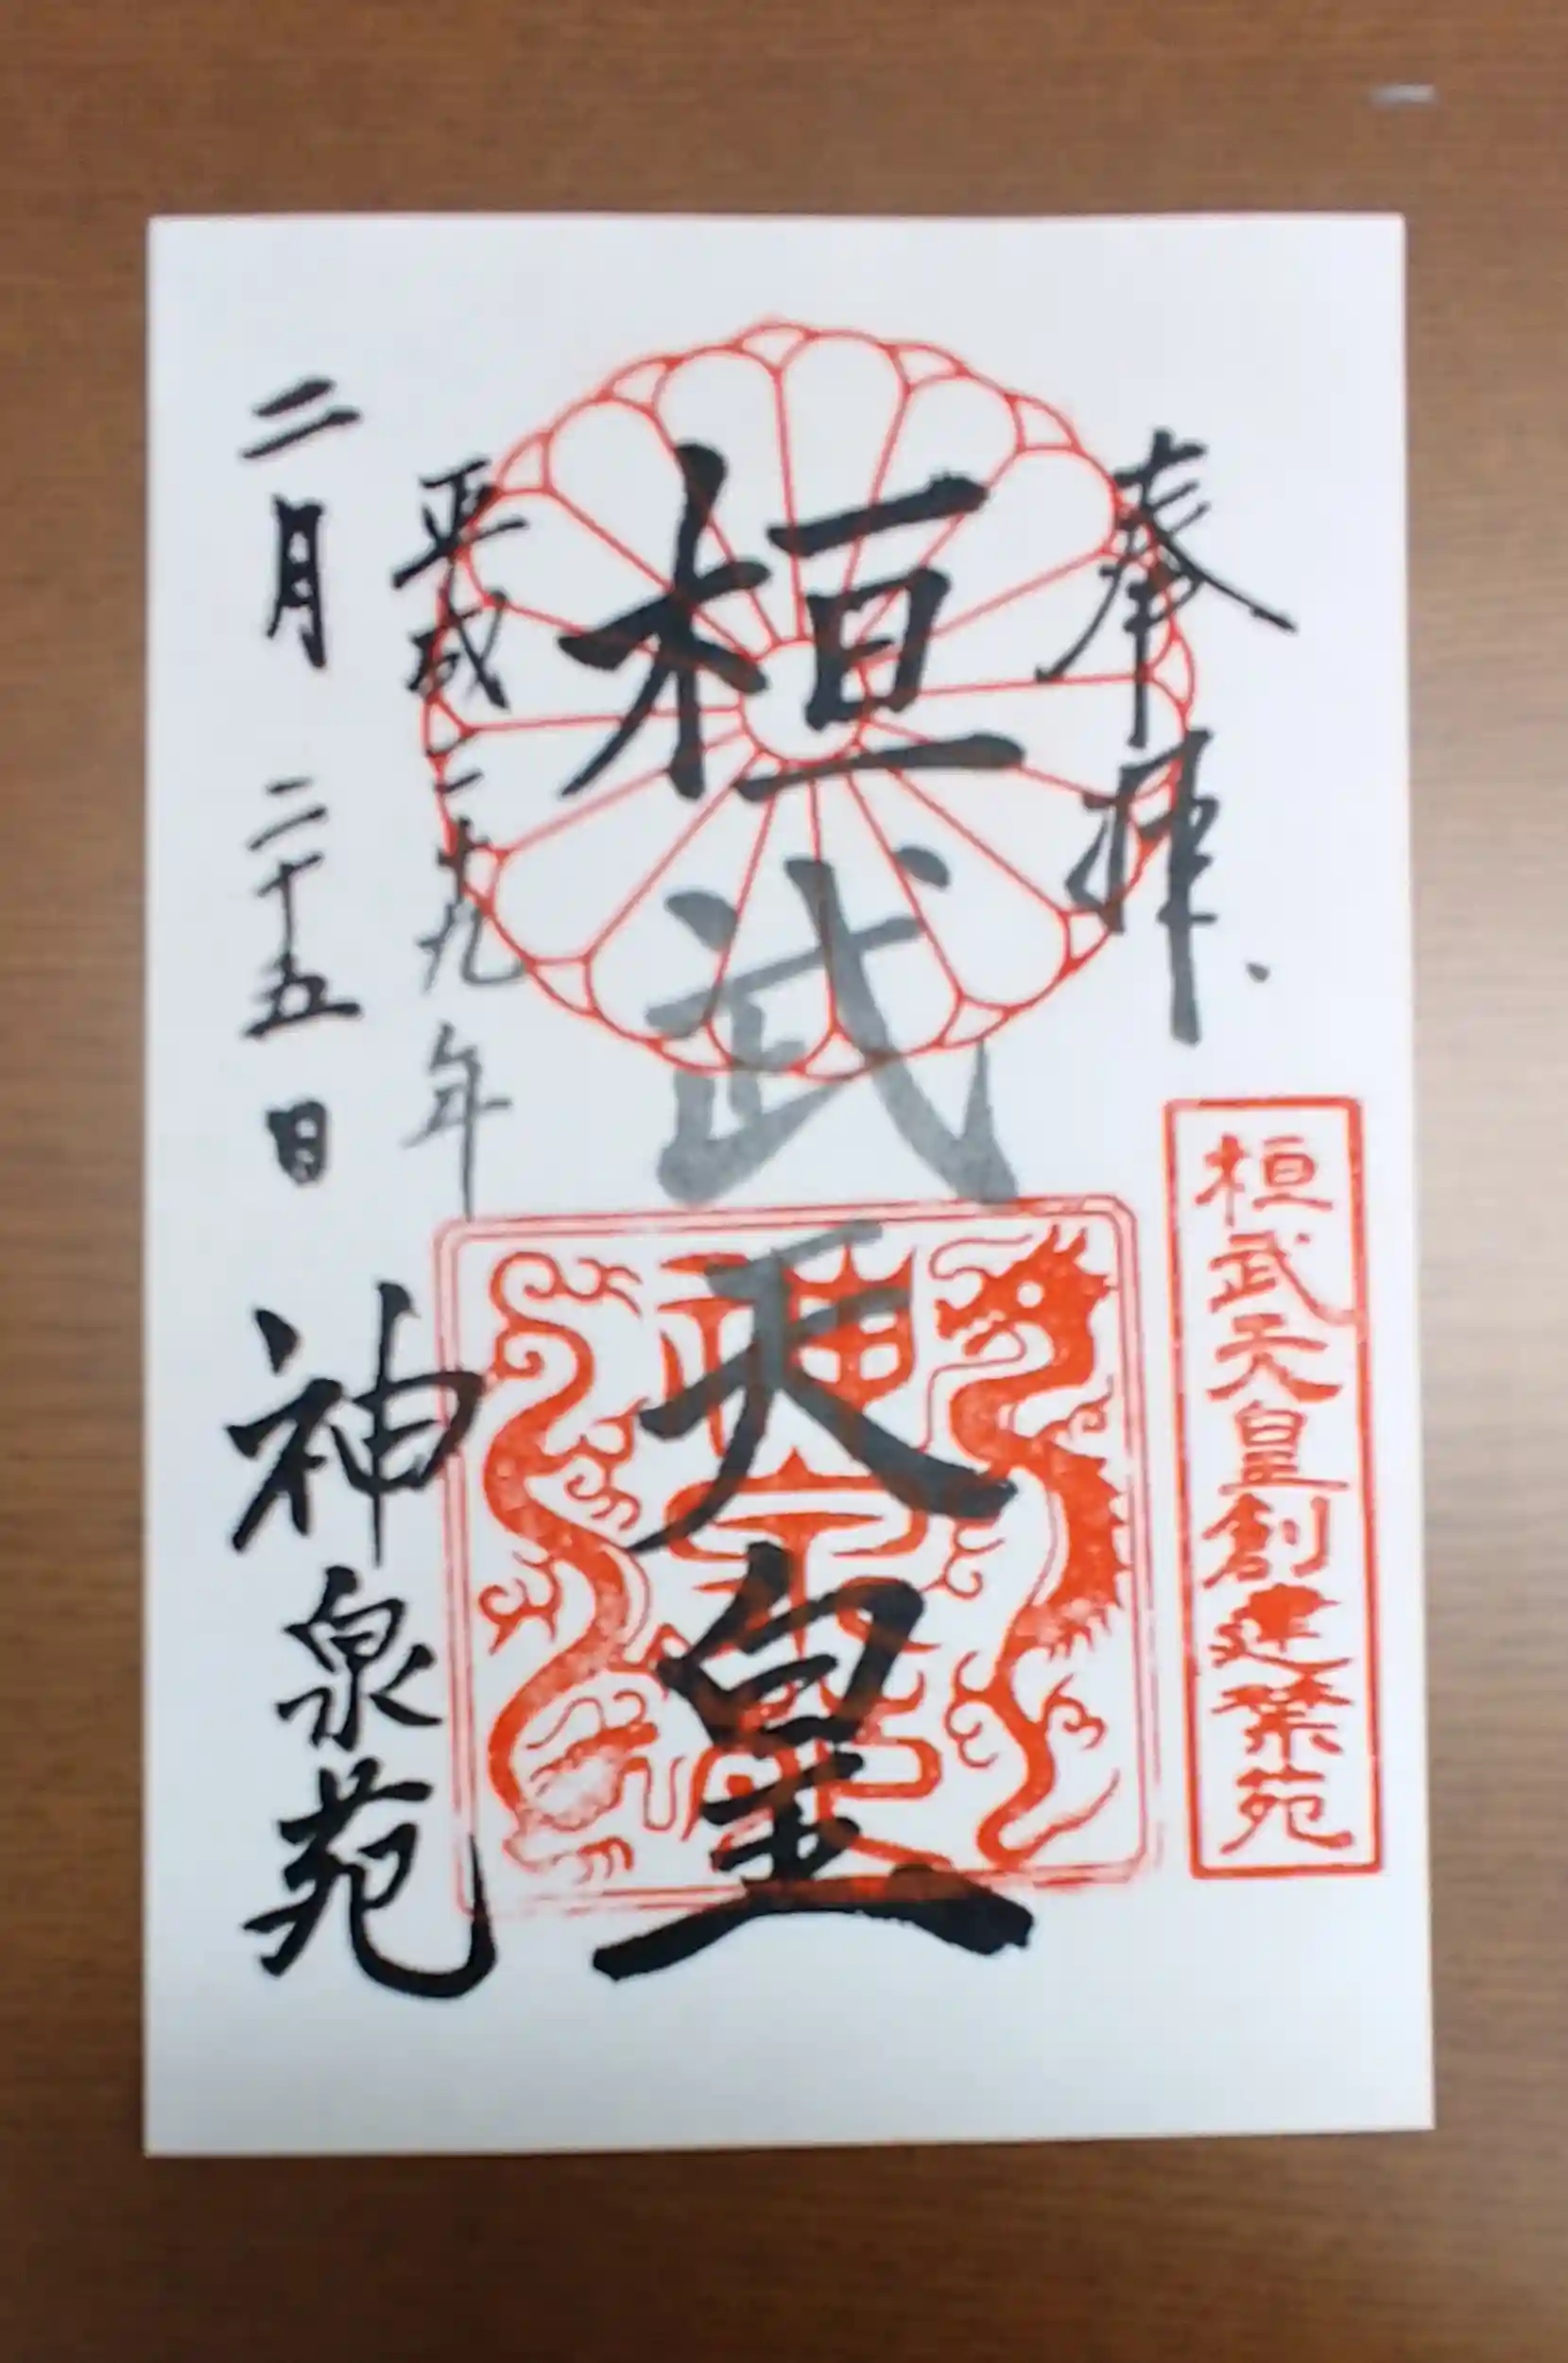 奉拝
桓武天皇創建禁苑
桓武天皇
神泉苑
平成二十九年
二月二十五日
神泉苑